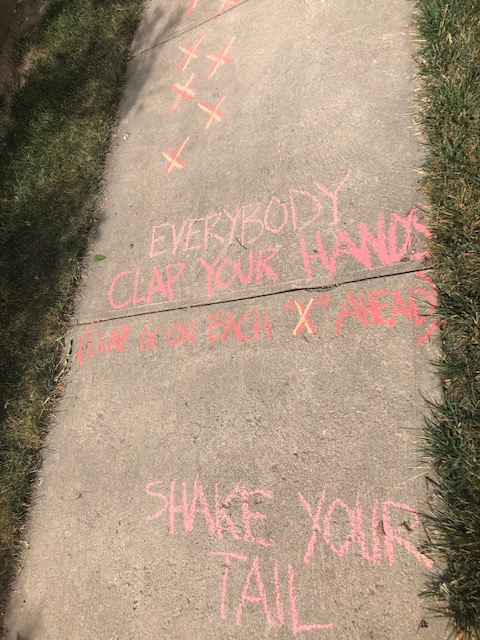 EVERYBODY
CLAP YOUR HANDS
(CLAP 1x ON EACH "X" AHEAD)
SHAKE YOUR
TAIL